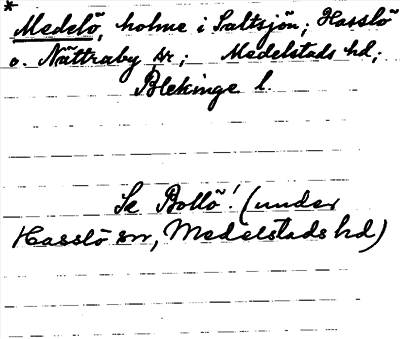 *
Medelö, holme i Saltsjön; Hasslö
o. Nättraby sr; Medelstads hd;
Blekinge l.
Se Bollö! (under
Hasslö sn, Medelstads hd)